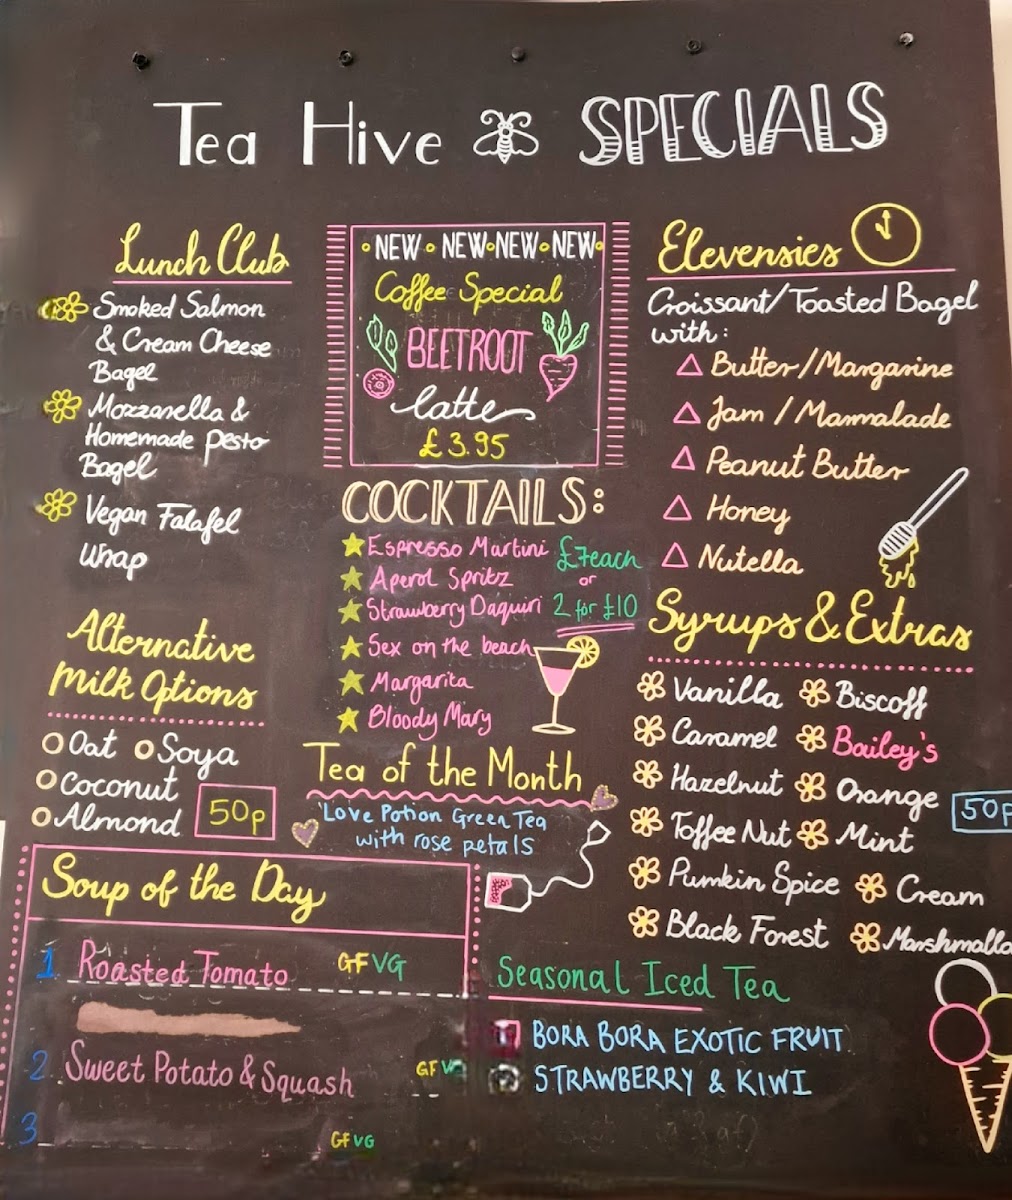 Tea Hive SPECIALS
Lunch Club
Smoked Salmon
& Cream Cheese
Bagel
Mozzarella &
Homemade pesto
Bagel
Vegan Falafel
Wrap
Alternative
Milk Options
Oat Soya
Coconut
Almond
50p
NEW NEW NEW NEW
Coffee Special
BEETROOT
latte
£3.95
COCKTAILS:
Espresso Martini
Aperol Spritz
Strawberry Daquiri
Sex on the beach
Margarita
Bloody Mary
£7each
or
2 for £10
Tea of the Month
Love Potion Green Tea
with rose petals
Elevensies
Croissant/Toasted Bagel
with:
Butter/Margarine
Jam / Marmalade
Peanut Butter
Honey
Nutella
Syrups & Extras
Vanilla Biscoff
Caramel Bailey's
Hazelnut Orange
50p
Toffee Nut Mint
Pumkin Spice Cream
Black Forest Marshmallo
Soup of the Day
1 Roasted Tomato GF VG
2 Sweet Potato & Squash GF VG
3 GF VG
Seasonal Iced Tea
BORA BORA EXOTIC FRUIT
STRAWBERRY & KIWI